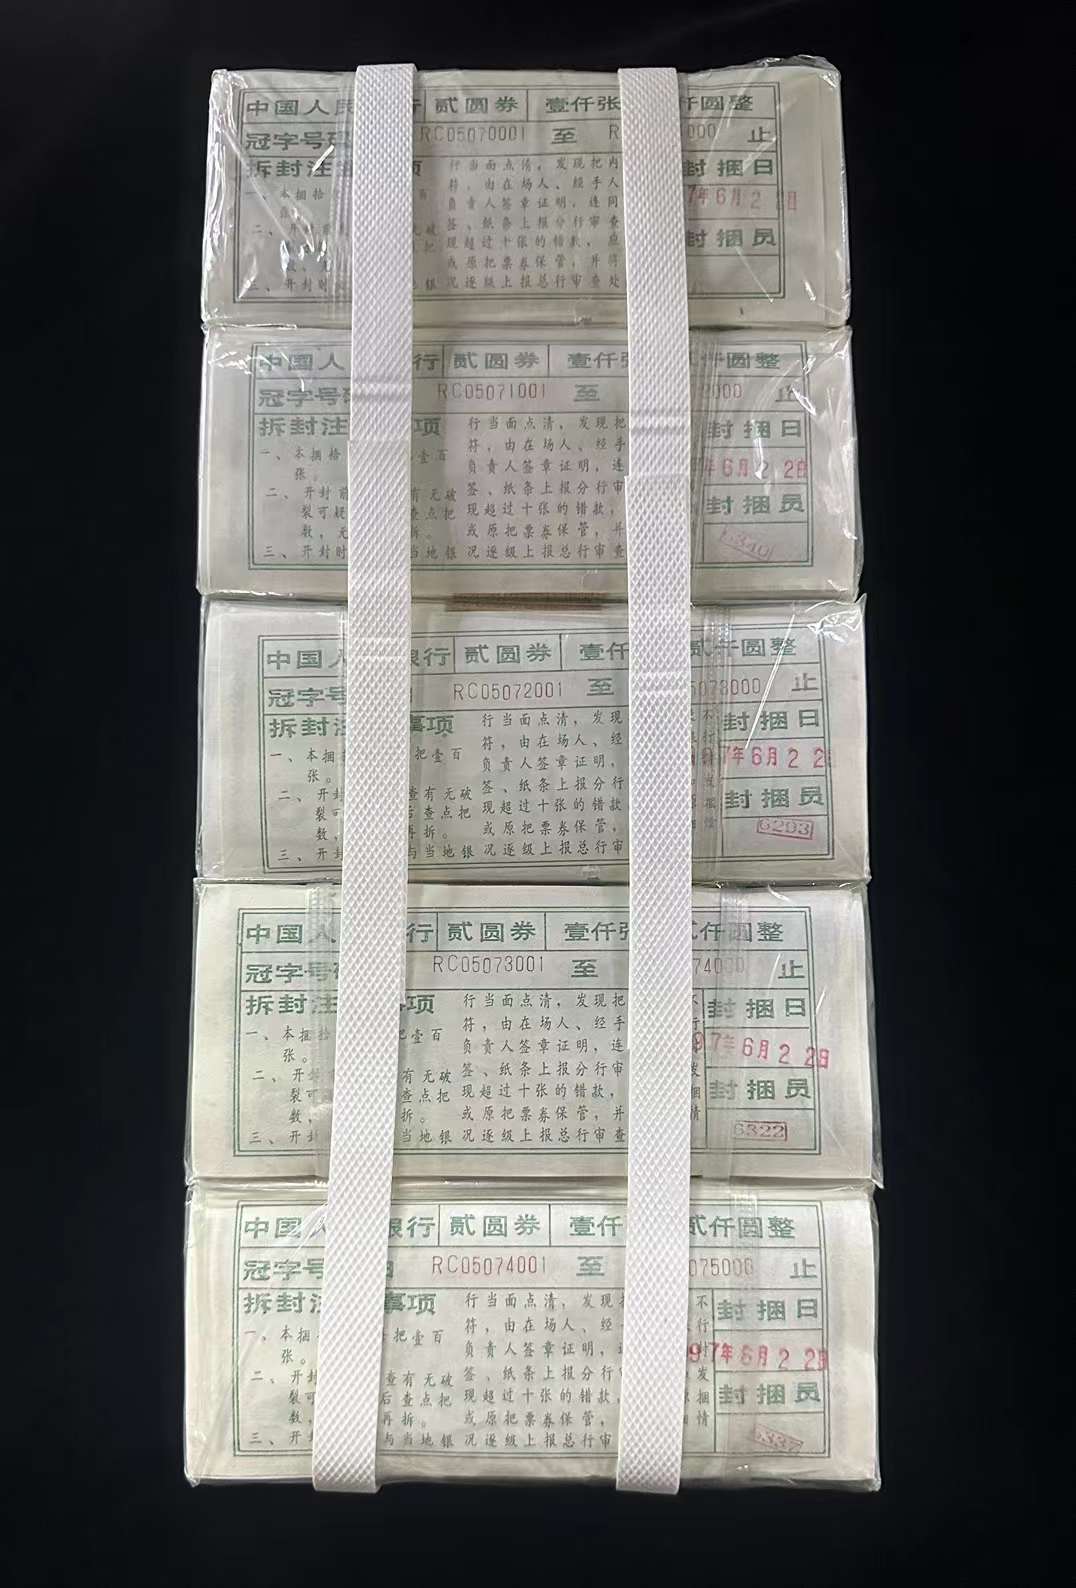 中国人民 行 贰圆券 壹仟张 仟圆整
冠字号码 RC05070001 至 R 000 止
拆封注 项 行当面点清，发现把内 封捆日
一、本捆拾 百 符，由在场人、经手人
负责人签章证明，连同 7年6月22日
二、开封前 无破 签、纸条上报分行审查
把 现超过十张的错款，应 封捆员
数， 或原把票券保管，并将
三、开封时 地银 况逐级上报总行审查处
中国人 行 贰圆券 壹仟 贰仟圆整
冠字号码 RC05071001 至 2000 止
拆封注 项 行当面点清，发现把 封捆日
一、本捆拾 壹百 符，由在场人、经手
张。 负责人签章证明，连 年6月22日
二、开封前 有无破 签、纸条上报分行审
裂可疑 查点把 现超过十张的错款， 封捆员
数，无 拆。 或原把票券保管，并
三、开封时 当地银 况逐级上报总行审查 6340
中国人 银行 贰圆券 壹仟 贰仟圆整
冠字号 RC05072001 至 5073000 止
拆封注 事项 行当面点清，发现 不 封捆日
一、本捆 把壹百 符，由在场人、经 行
张。 负责人签章证明， 97年6月22
二、开封 查有无破 签、纸条上报分行 发
裂 后查点把 现超过十张的错款 封捆员
数， 再拆。 或原把票券保管， 情 6293
三、开封 与当地银 况逐级上报总行审
中国人 行 贰圆券 壹仟张 仟圆整
冠字号码 RC05073001 至 74000 止
拆封注 项 行当面点清，发现把 不 封捆日
一、本捆拾 把壹百 符，由在场人、经手 行
张。 负责人签章证明，连 97年6月22日
二、开封 有无破 签、纸条上报分行 发
裂可 查点把 现超过十张的错款， 捆 封捆员
数， 拆。 或原把票券保管，并 情
三、开封 当地银 况逐级上报总行审查 6322
中国人 银行 贰圆券 壹仟 贰仟圆整
冠字号 RC05074001 至 075000 止
拆封注 事项 行当面点清，发现 不 封捆日
一、本捆 把壹百 符，由在场人、经 行
张。 负责人签章证明， 97年6月22日
二、开封 查有无破 签、纸条上报分行 发
裂可 后查点把 现超过十张的错款， 捆 封捆员
数， 再拆。 或原把票券保管， 情
三、开封 与当地银 况逐级上报总行审 6337